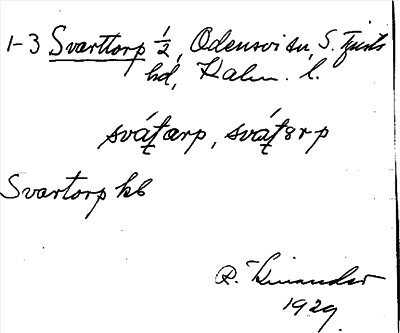 1-3 Svarttorp ½, Odensvi sn, S. Tjusts
hd, Kalm. l.
sváṯarp, sváṯɜrp
Svartorp kb
R. Kinander
1929